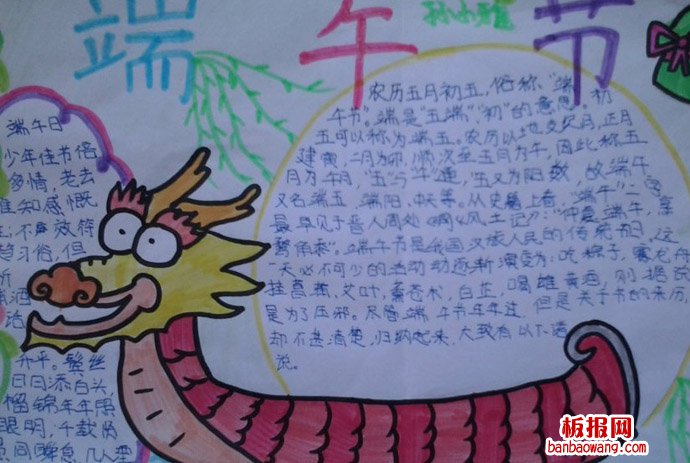 端午节
孙小雅
端午日
少年佳节倍
多情,老去
谁知感慨
生;不效艾符
趋习俗,但
祈
酒
话
升平。鬓丝
日日添白头
榴锦年年照
眼明;千载贤
愚同瞬息,几人
农历五月初五,俗称“端
午节”。端是“五端”“初”的意思,初
五可以称为端五。农历以地支纪月,正月
建寅,二月为卯,顺次至五月为午,因此称五
月为午月,“五”与“午”通,“五”又为阳数,故端午
又名端五、端阳、中天等。从史籍上看,“端午”二字
最早见于晋人周处《风土记》:“仲夏端午,烹
鹜角黍”。端午节是我国汉族人民的传统节日。这
一天必不可少的活动动逐渐演变为:吃粽子,赛龙舟
挂菖蒲、艾叶,薰苍术、白芷,喝雄黄酒。则据说
是为了压邪。尽管端午节年年过,但是关于节的来历,
却不甚清楚,归纳起来,大致有以下诸
说。
板报网
banbaowang.com